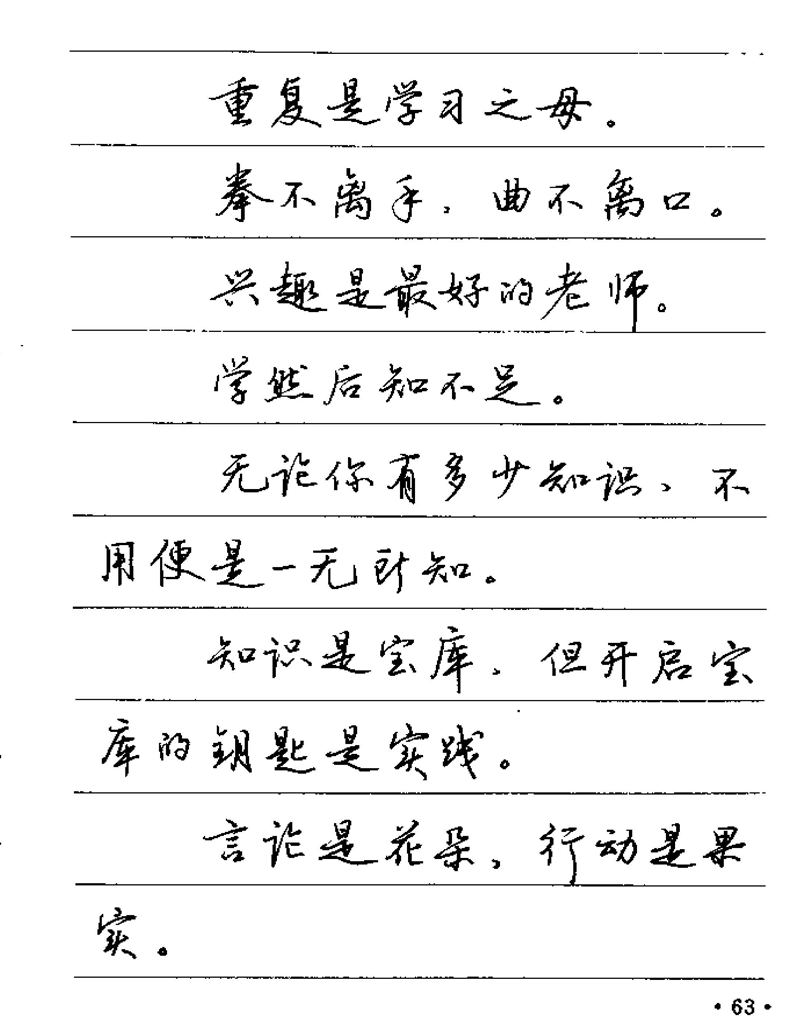 重复是学习之母。
拳不离手，曲不离口。
兴趣是最好的老师。
学然后知不足。
无论你有多少知识，不
用便是一无所知。
知识是宝库，但开启宝
库的钥匙是实践。
言论是花朵，行动是果
实。
·63·